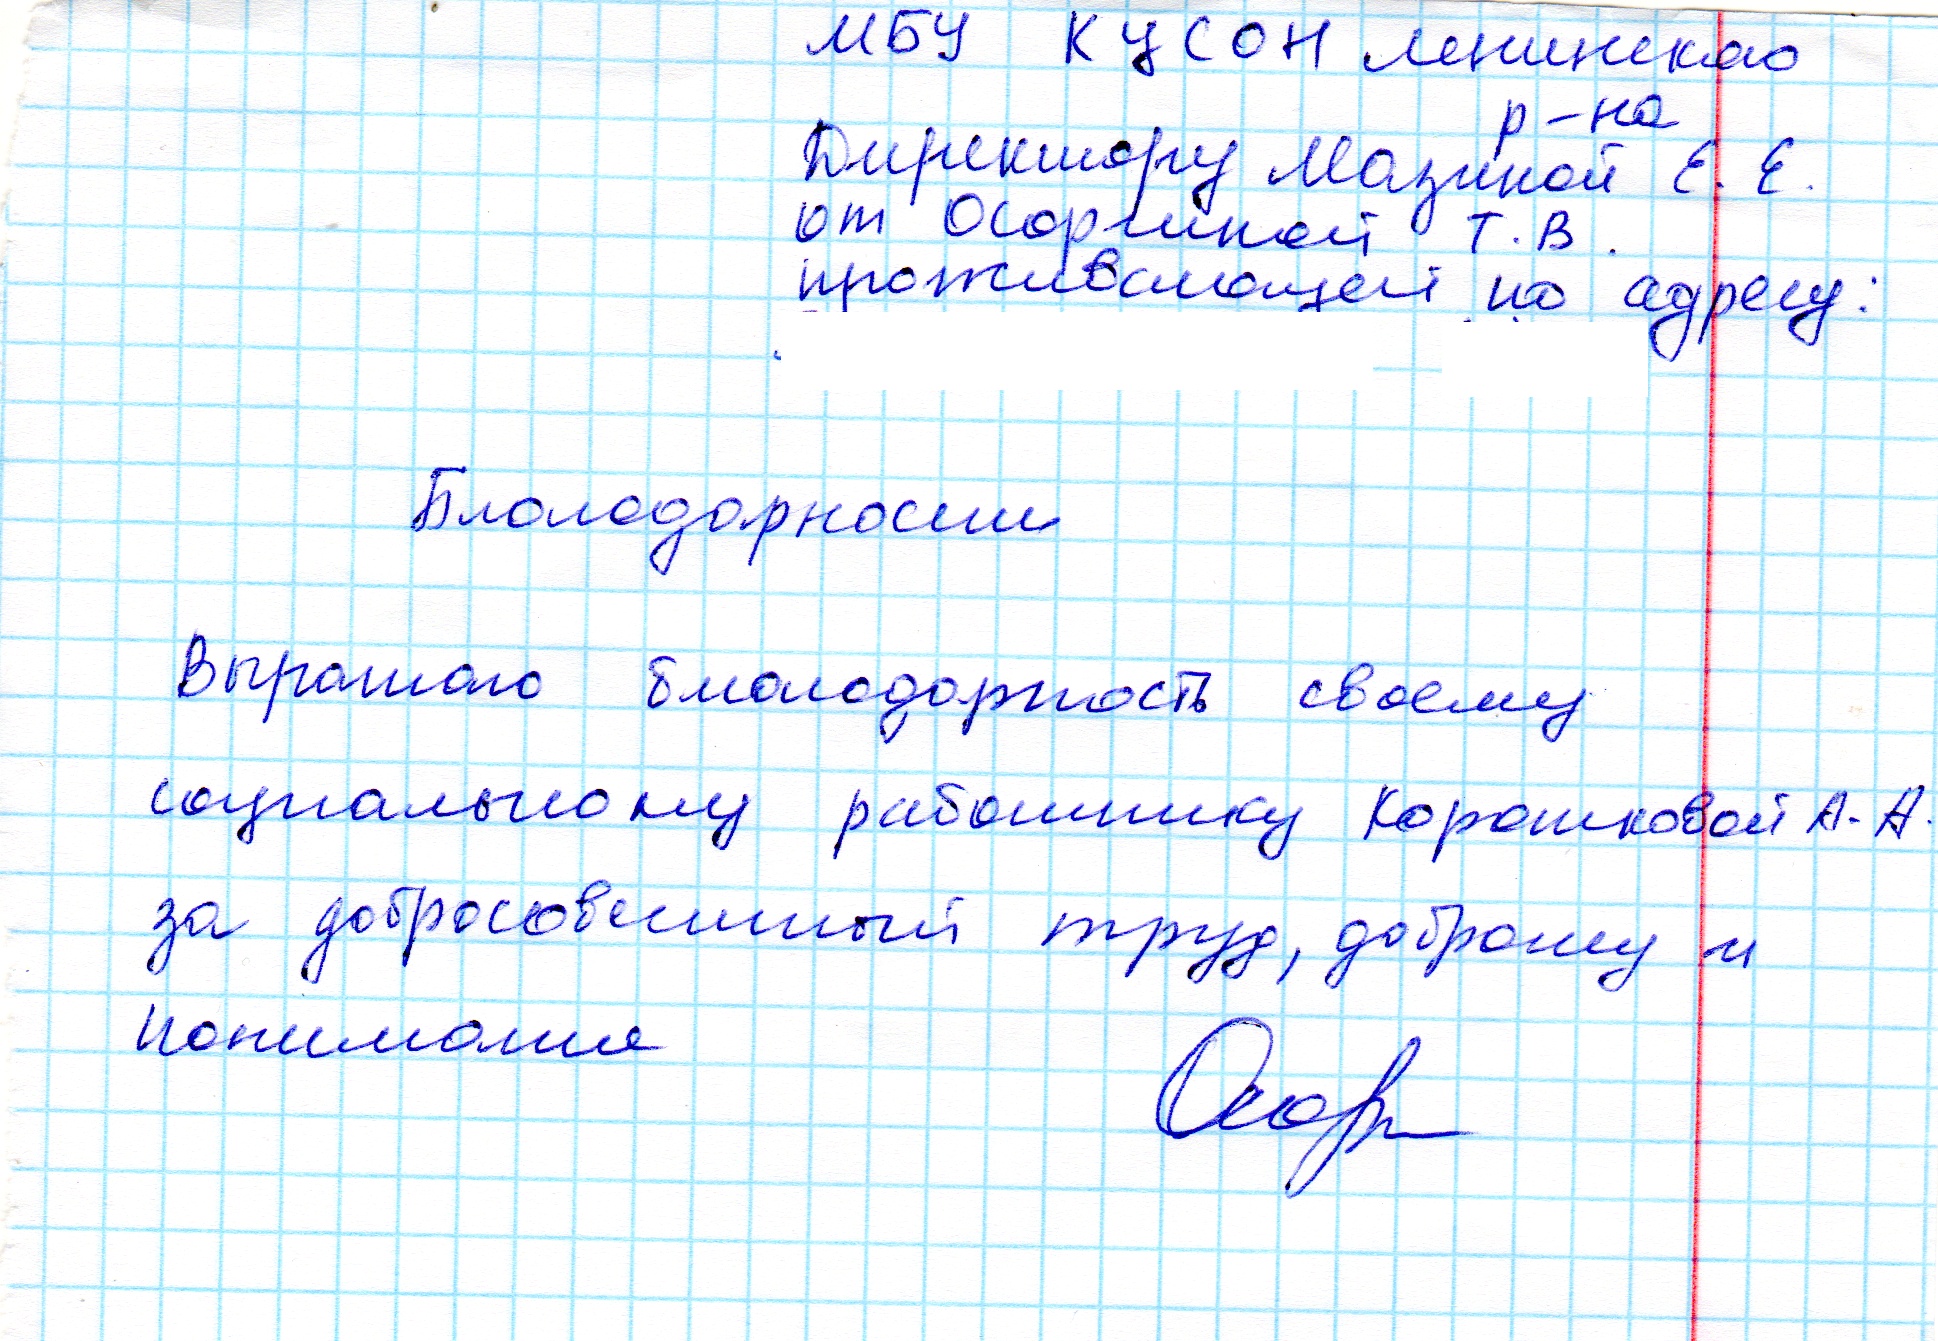 МБУ КЦСОН Ленинского
р-на
Директору Мазиной Е. Е.
от Осоргиной Т. В.
проживающей по адресу:
Благодарность
Выражаю благодарность своему
социальному работнику Корошковой А. А.
за добросовестный труд, доброту и
понимание